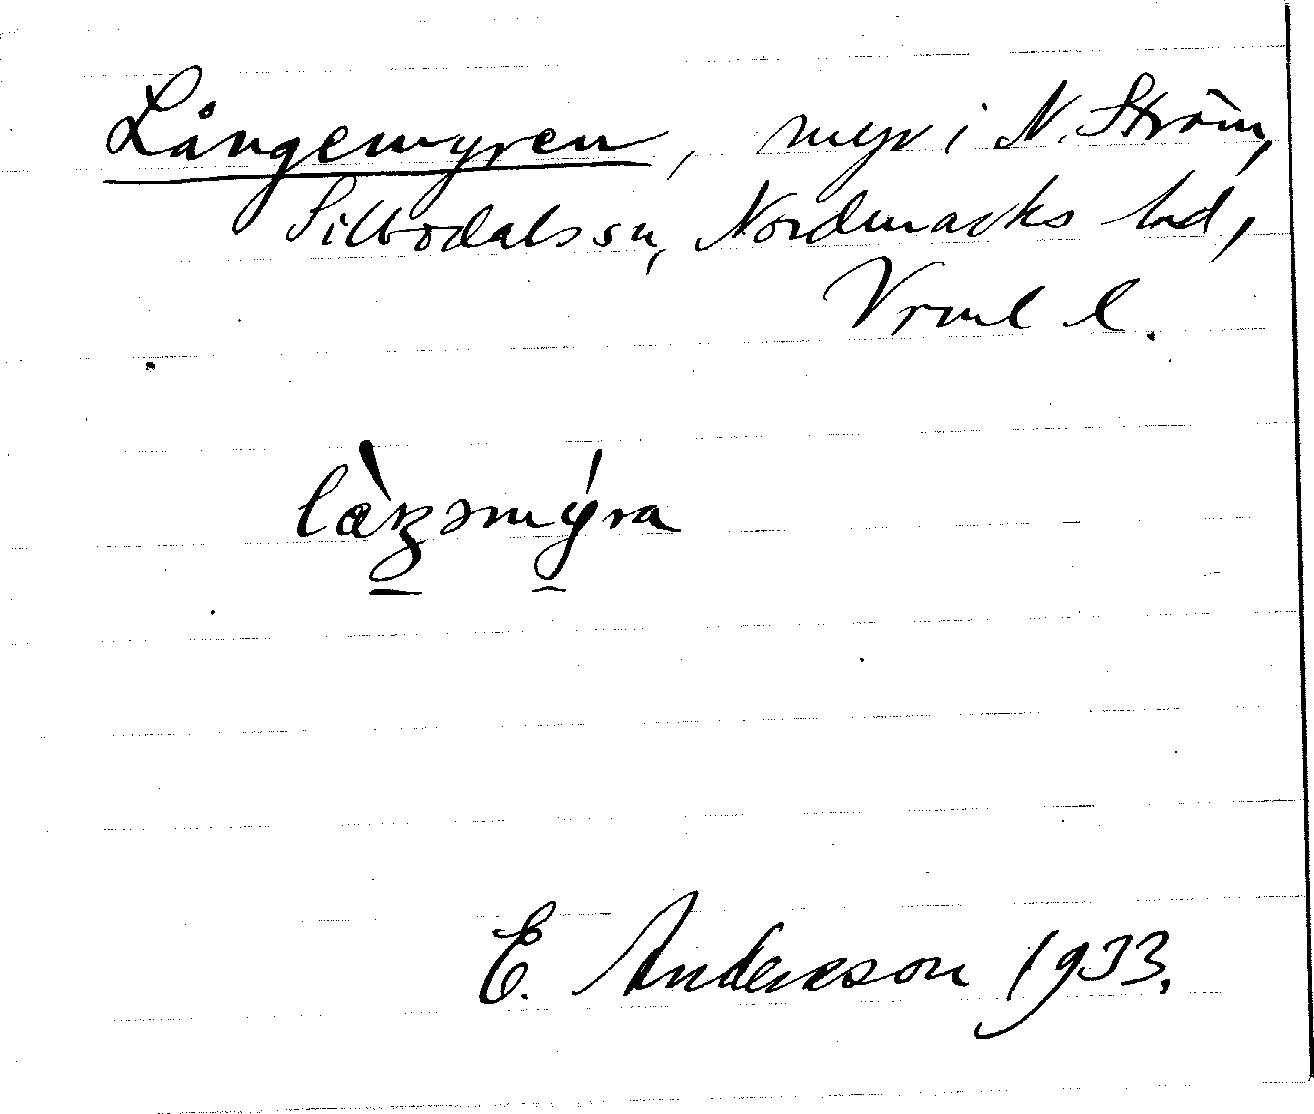 Långemyren, myr i N. Ström,
Silbodals sn, Nordmarks hd,
Vrml l.
E. Anderson 1933.